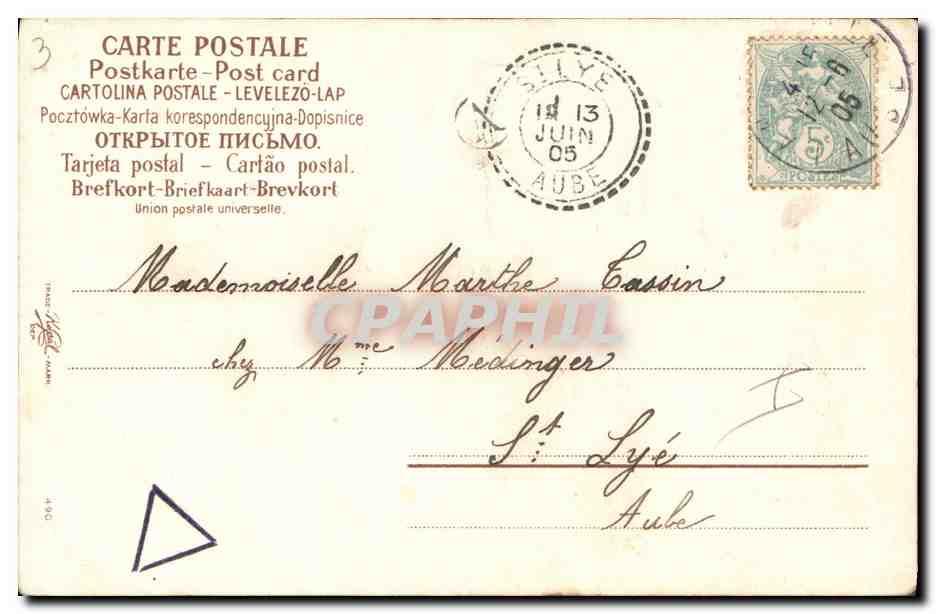 3
CARTE POSTALE
Postkarte-Post card
CARTOLINA POSTALE - LEVELEZÖ-LAP
Pocztówka-Karta korespondencyjna-Dopisnice
ОТКРЫТОЕ ПИСЬМО.
Tarjeta postal - Cartão postal.
Brefkort-Briefkaart-Brevkort
Union postale universelle.
ST LYE
13
JUIN
05
AUBE
12 -6
05
5c
POSTES
Mademoiselle Marthe Tassin
CPAPHIL
chez Mme Médinger
St Lyé
Aube
TRADE MARK
DEP
490